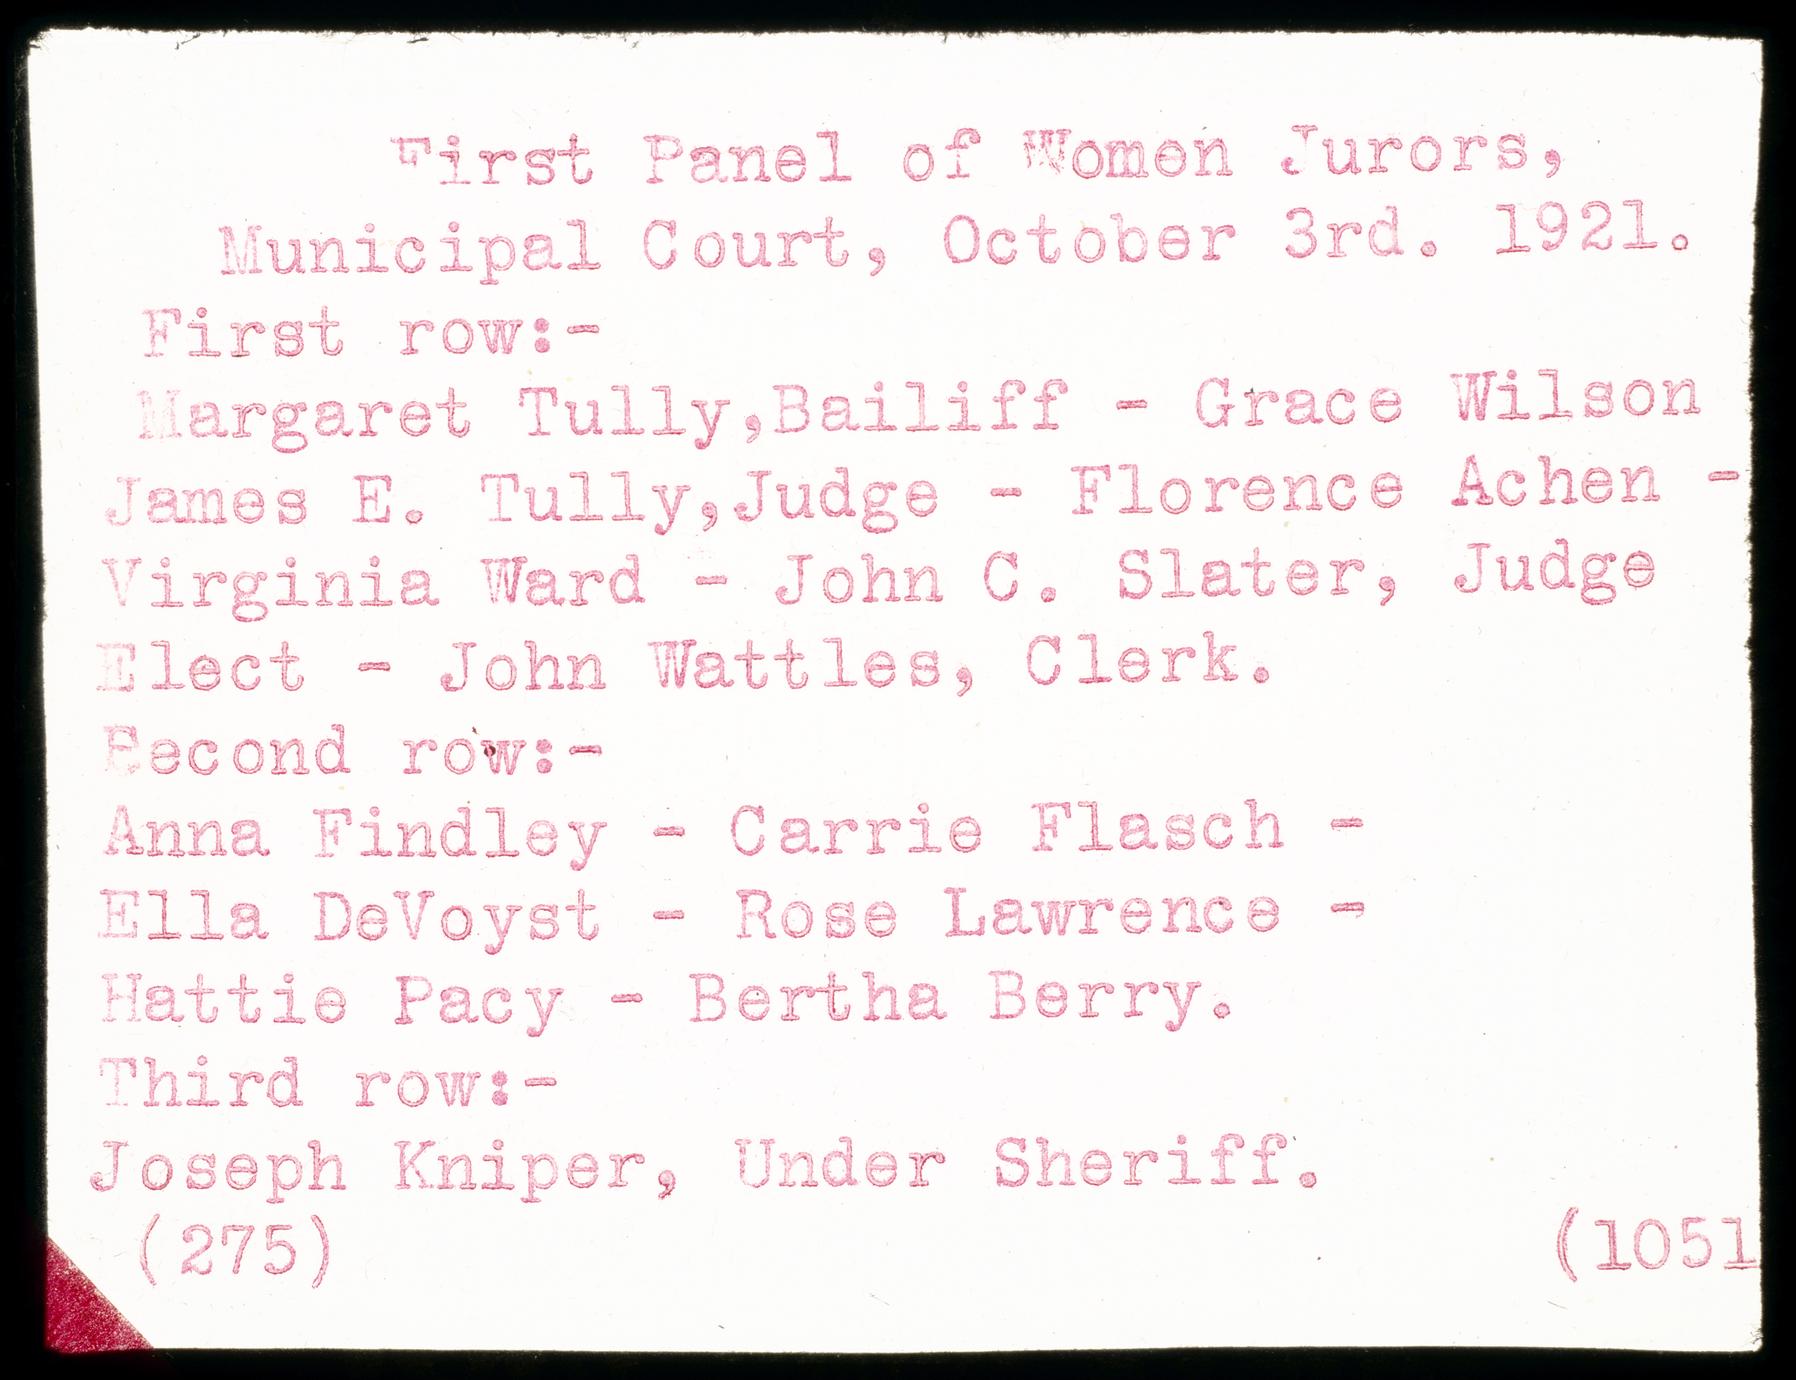 First Panel of Women Jurors,
Municipal Court, October 3rd. 1921.
First row:-
Margaret Tully,Bailiff - Grace Wilson
James E. Tully,Judge - Florence Achen -
Virginia Ward - John C. Slater, Judge
Elect - John Wattles, Clerk.
Second row:-
Anna Findley - Carrie Flasch -
Ella DeVoyst - Rose Lawrence -
Hattie Pacy - Bertha Berry.
Third row:-
Joseph Kniper, Under Sheriff.
(275) (1051